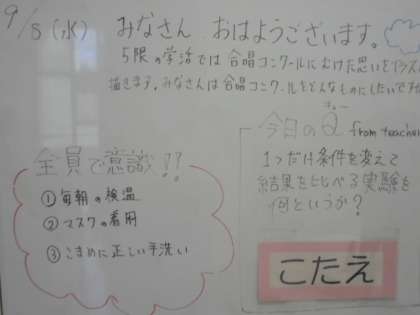 9/8(水) みなさん おはようございます。
5限の学活では合唱コンクールにむけた思いをイラスト
描きます。みなさんは合唱コンクールをどんなものにしたいですか
今日のQ from teacher
1つだけ条件を変えて
結果を比べる実験を
何というか?
こたえ
全員で意識!!
①毎朝の検温
②マスクの着用
③こまめに正しい手洗い